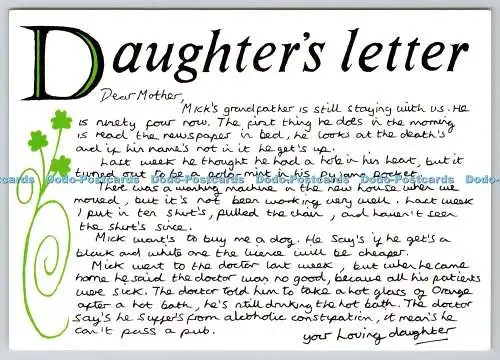 Daughter's letter
Dear Mother,
Mick's grandfather is still staying with us. He
is ninety four now. The first thing he does in the morning
is read the newspaper in bed, he looks at the death's
and if his name's not in it he get's up.
Last week he thought he had a hole in his heart, but it
turned out to be a polo-mint in his pyjama pocket.
Dodo-Postcards Dodo-Postcards Dodo-Postcards Dodo-Postcards
There was a washing machine in the new house when we
moved, but it's not been working very well. Last week
I put in ten shirt's, pulled the chain, and haven't seen
the shirt's since.
Mick want's to buy me a dog. He say's if he get's a
black and white one the licence will be cheaper.
Mick went to the doctor last week, but when he came
home he said the doctor was no good, because all his patients
were sick. The doctor told him to take a hot glass of orange
after a hot bath, he's still drinking the hot bath. The doctor
say's he suffers from alcoholic constipation, it mean's he
can't pass a pub.
your Loving daughter